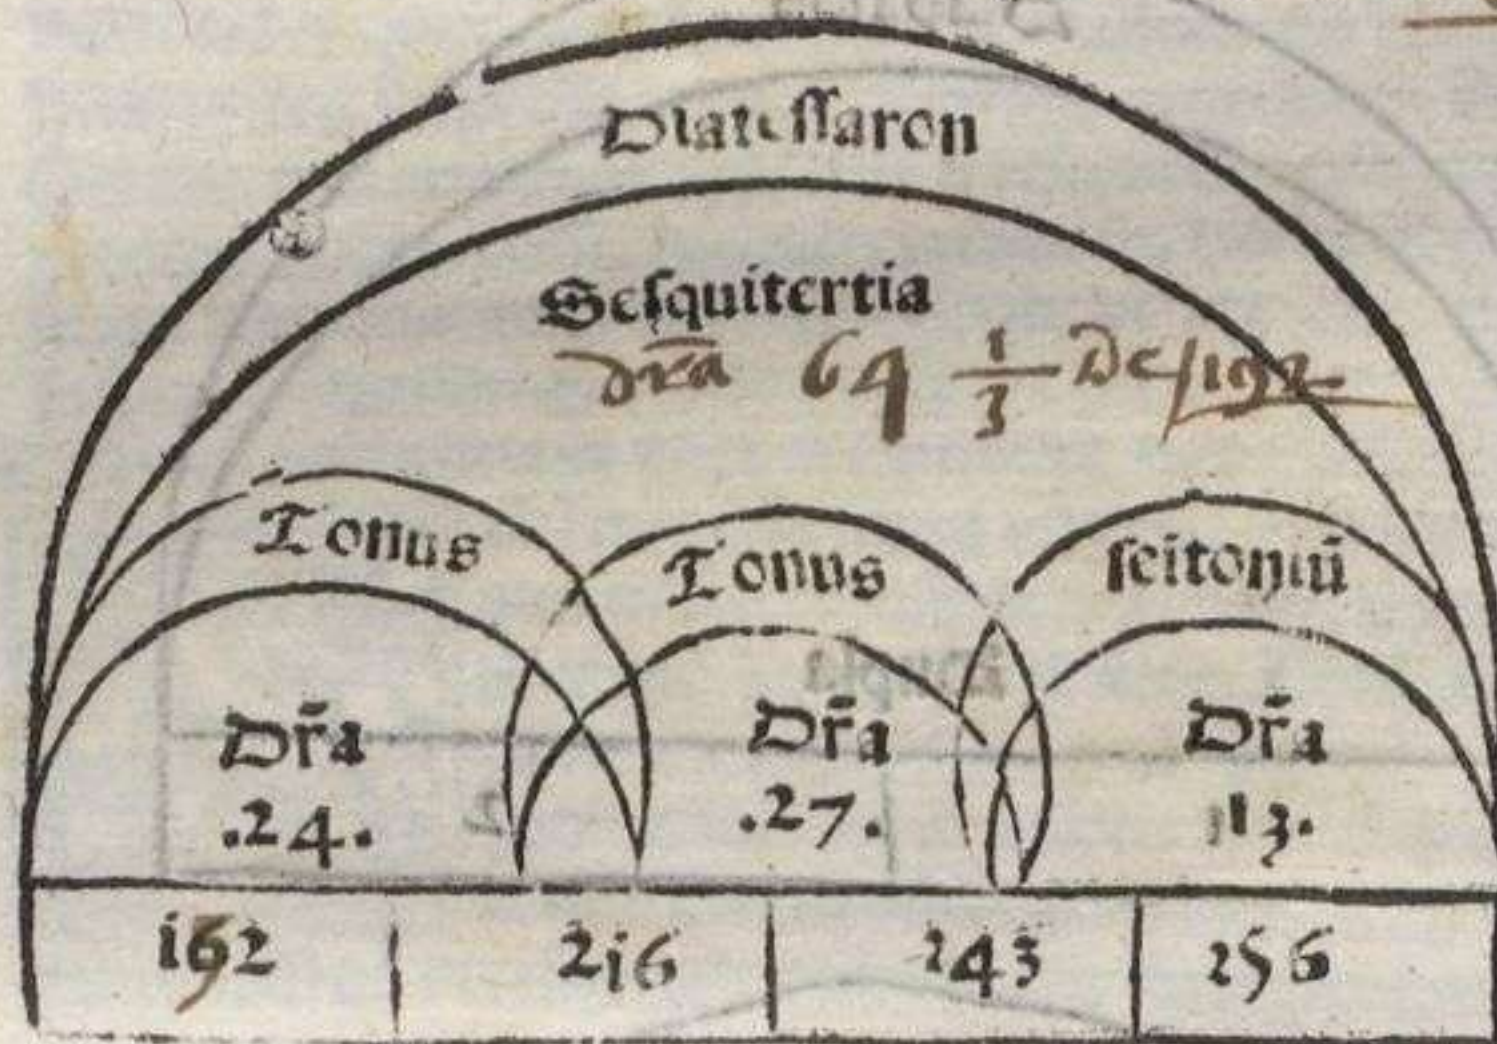 Diatessaron
Sesquitertia
dr̄a 64 1/3 De 192
Tonus Tonus seitoniū
Dr̄a Dr̄a Dr̄a
.24. .27. 13.
192 216 243 256